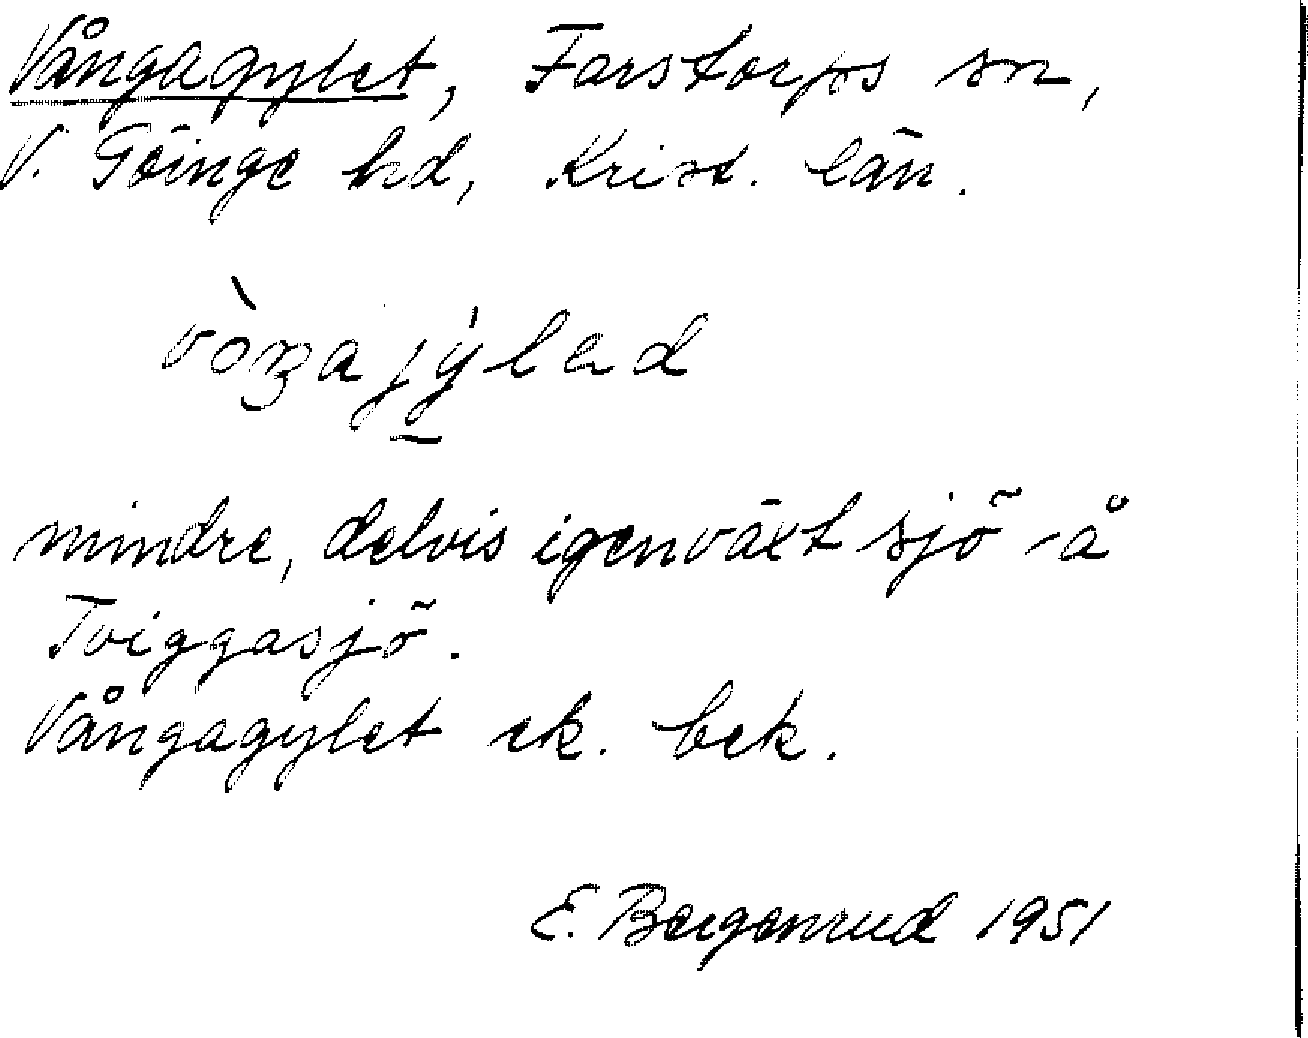 Vångagylet, Farstorps sn,
V. Göinge hd, Krist. län.
vòŋajýləd
mindre, delvis igenväxt sjö å
Tviggasjö.
Vångagylet ek. bek.
E. Bergenrud 1951